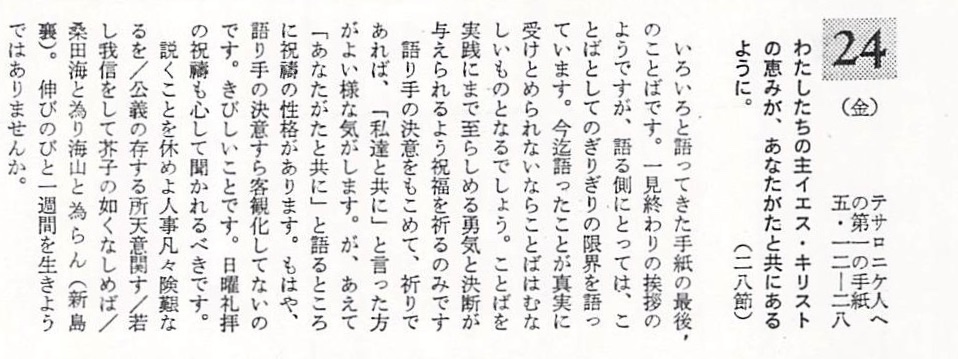 24
(金)
テサロニケ人へ
の第一の手紙
五・一二―二八
わたしたちの主イエス・キリスト
の恵みが、あなたがたと共にある
ように。
(二八節)
いろいろと語ってきた手紙の最後,
のことばです。一見終わりの挨拶の
ようですが、語る側にとっては、こ
とばとしてのぎりぎりの限界を語っ
ています。今迄語ったことが真実に
受けとめられないならことばはむな
しいものとなるでしょう。ことばを
実践にまで至らしめる勇気と決断が
与えられるよう祝福を祈るのみです
語り手の決意をもこめて、祈りで
あれば、「私達と共に」と言った方
がよい様な気がします。が、あえて
「あなたがたと共に」と語るところ
に祝禱の性格があります。もはや、
語り手の決意すら客観化してないの
です。きびしいことです。日曜礼拝
の祝禱も心して聞かれるべきです。
説くことを休めよ人事凡々険艱な
るを/公義の存する所天意関す/若
し我信をして芥子の如くなしめば/
桑田海と為り海山と為らん(新島
襄)。伸びのびと一週間を生きよう
ではありませんか。